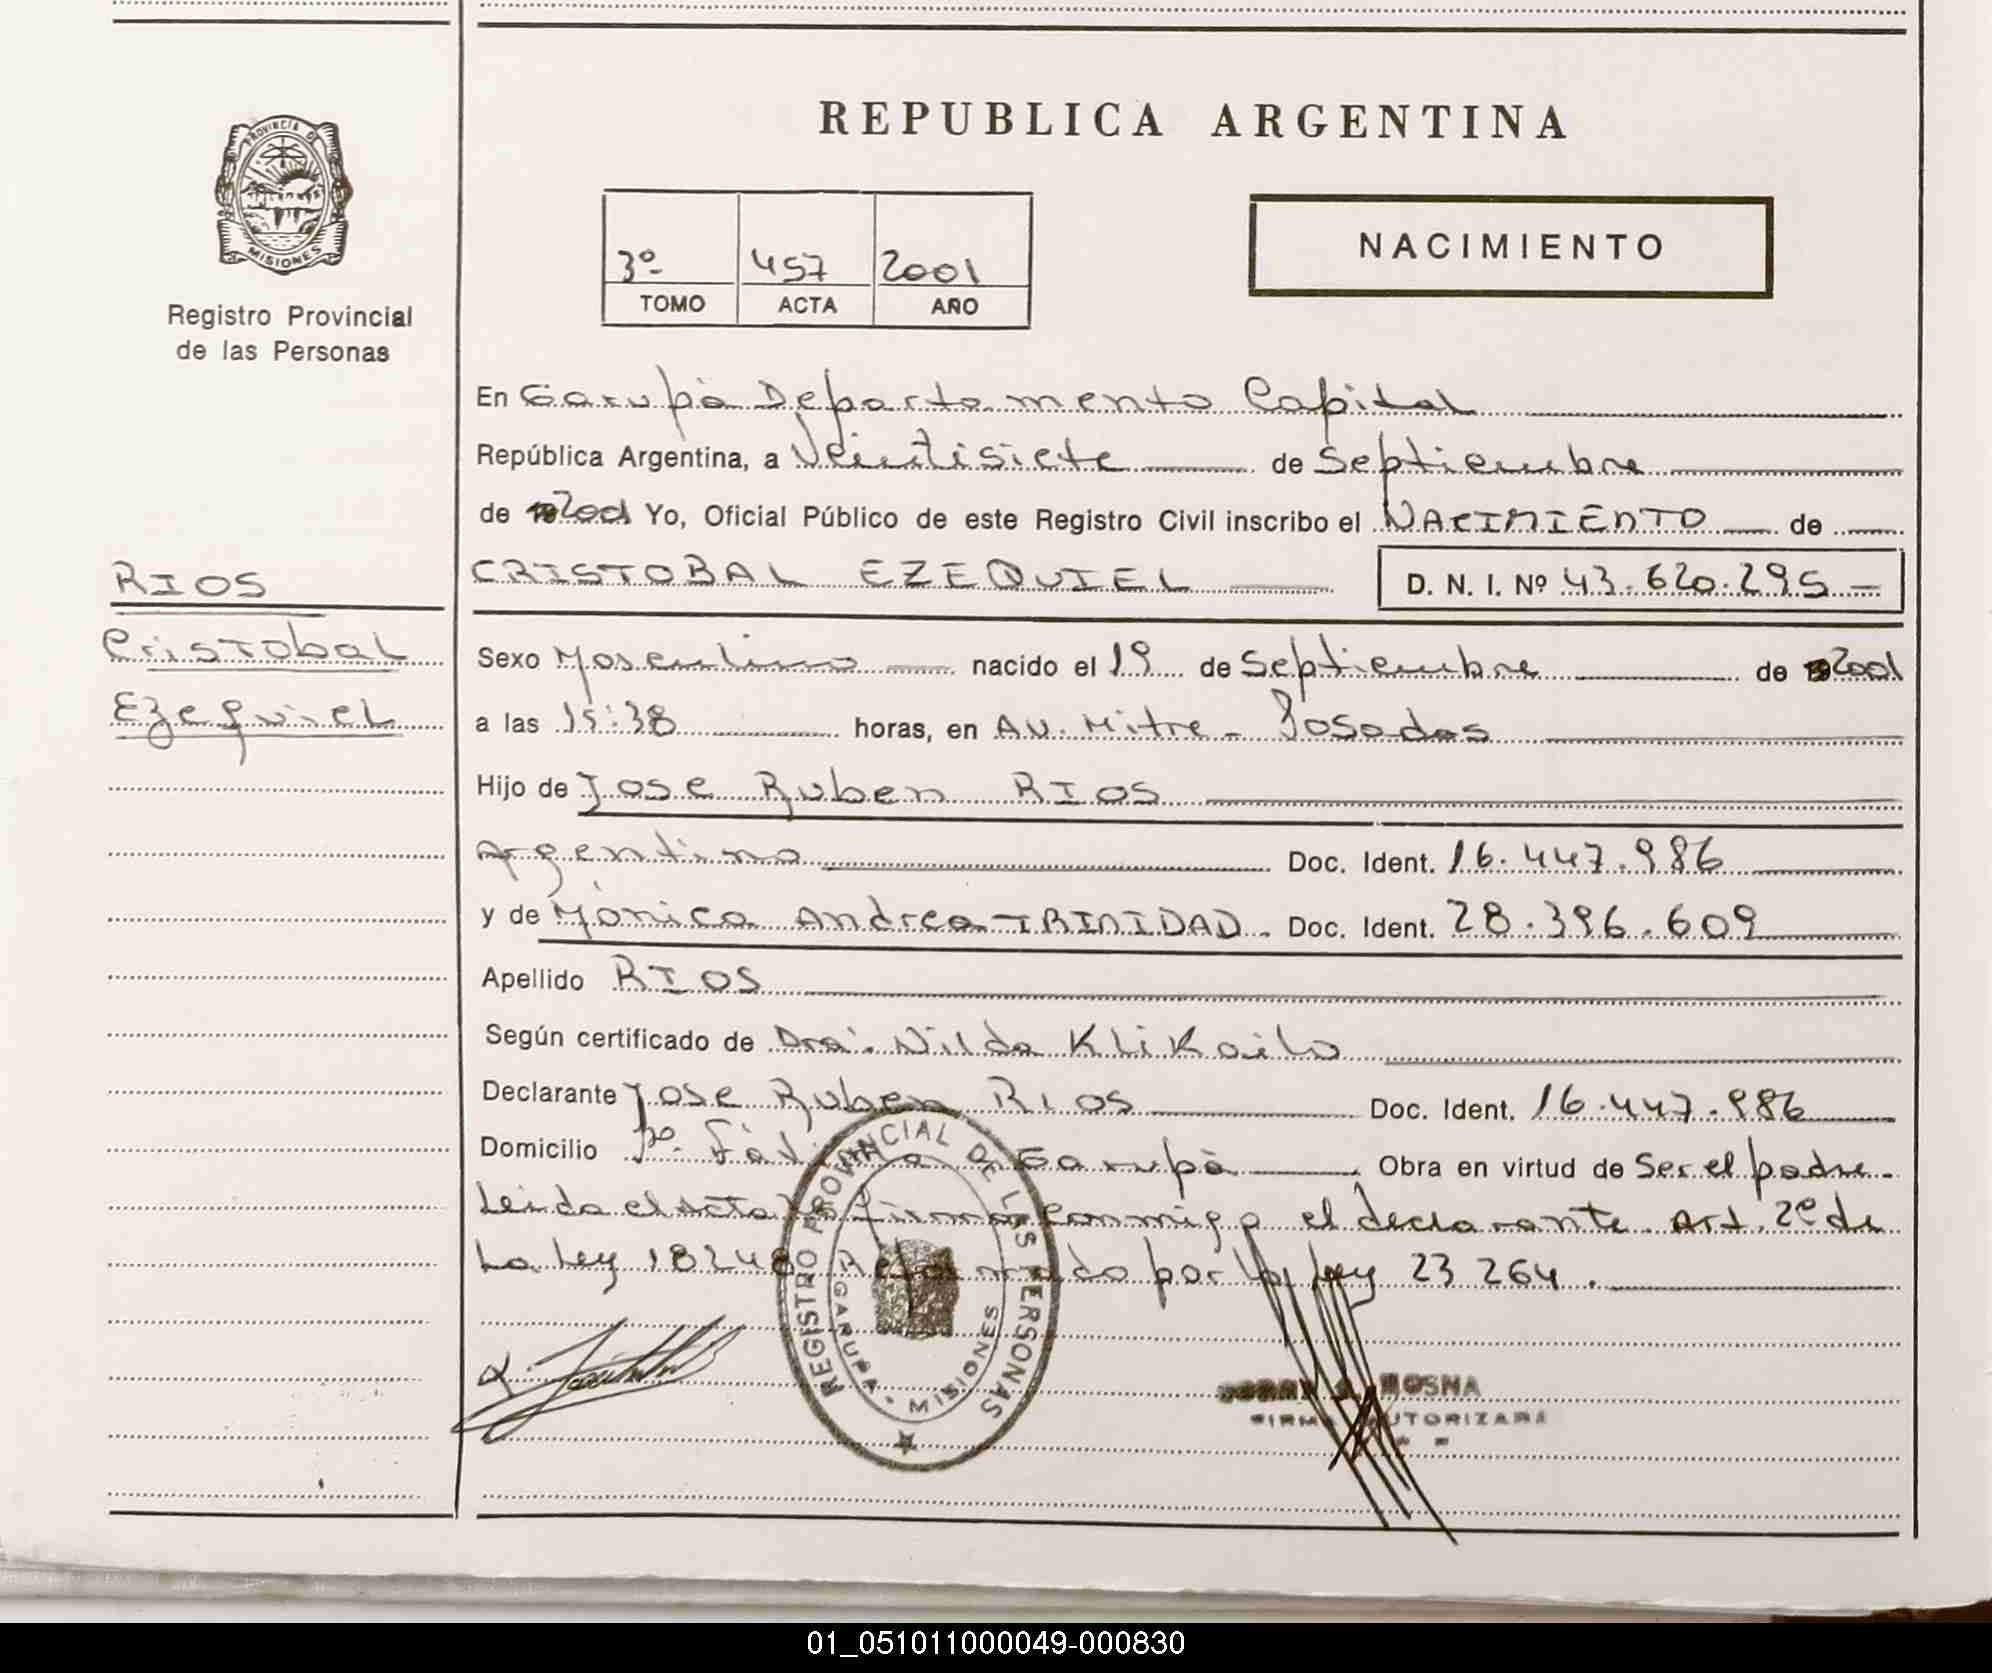 REPUBLICA ARGENTINA
PROVINCIA DE
MISIONES
Registro Provincial
de las Personas
3º 457 2001
TOMO ACTA AÑO
NACIMIENTO
En Garupà Departamento Capital
República Argentina, a Veintisiete de Septiembre
de 2001 Yo, Oficial Público de este Registro Civil inscribo el NACIMIENTO de
RIOS
CRISTOBAL EZEQUIEL D. N. I. Nº 43.620.295
Cristobal
Sexo Masculino nacido el 19 de Septiembre de 2001
Ezequiel
a las 15:38 horas, en Av. Mitre - Posadas
Hijo de Jose Ruben RIOS
Argentino Doc. Ident. 16.447.986
y de Mònica Andrea TRINIDAD. Doc. Ident. 28.396.609
Apellido RIOS
Según certificado de Dra. Nilda Klikailo
Declarante Jose Ruben Rios Doc. Ident. 16.447.986
Domicilio Garupà Obra en virtud de Ser el padre.
Leida el acta la firma conmigo el declarante. Art. 2º de
La Ley 18248 Reformado por la Ley 23264.
REGISTRO PROVINCIAL DE LAS PERSONAS
GARUPA - MISIONES
MOSNA
FIRMA AUTORIZADA
01_051011000049-000830